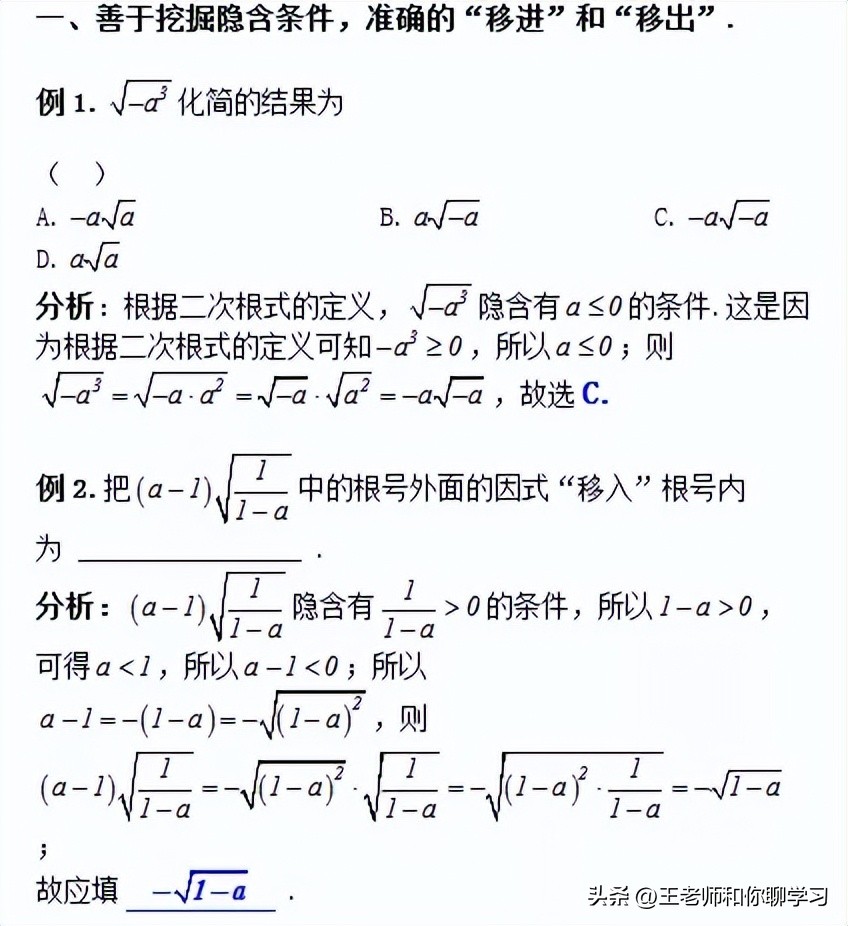 一、善于挖掘隐含条件，准确的“移进”和“移出”.
例1. √(-a³) 化简的结果为
（　）
A. -a√a　B. a√(-a)　C. -a√(-a)
D. a√a
分析：根据二次根式的定义，√(-a³) 隐含有 a≤0 的条件.这是因
为根据二次根式的定义可知 -a³≥0，所以 a≤0；则
√(-a³)=√(-a·a²)=√(-a)·√(a²)=-a√(-a)，故选 C.
例2. 把 (a-1)√(1/(1-a)) 中的根号外面的因式“移入”根号内
为 ________________ .
分析：(a-1)√(1/(1-a)) 隐含有 1/(1-a)>0 的条件，所以 1-a>0，
可得 a<1，所以 a-1<0；所以
a-1=-(1-a)=-√((1-a)²)，则
(a-1)√(1/(1-a))=-√((1-a)²)·√(1/(1-a))=-√((1-a)²·1/(1-a))=-√(1-a)
；
故应填 -√(1-a) .
头条 @王老师和你聊学习